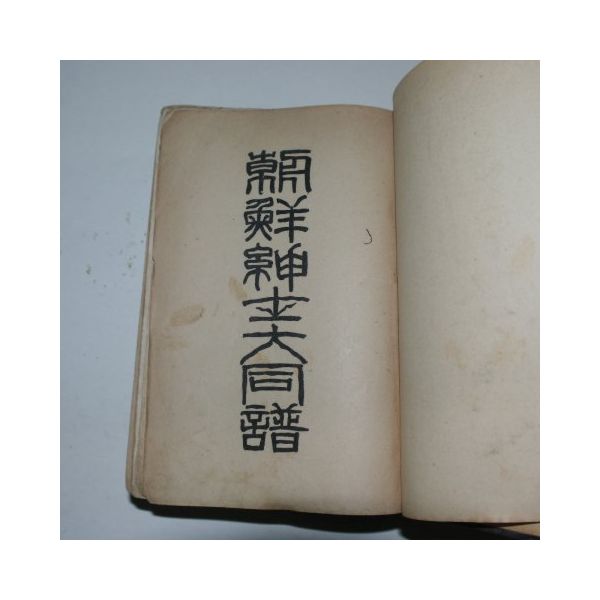 朝鮮紳士大同譜